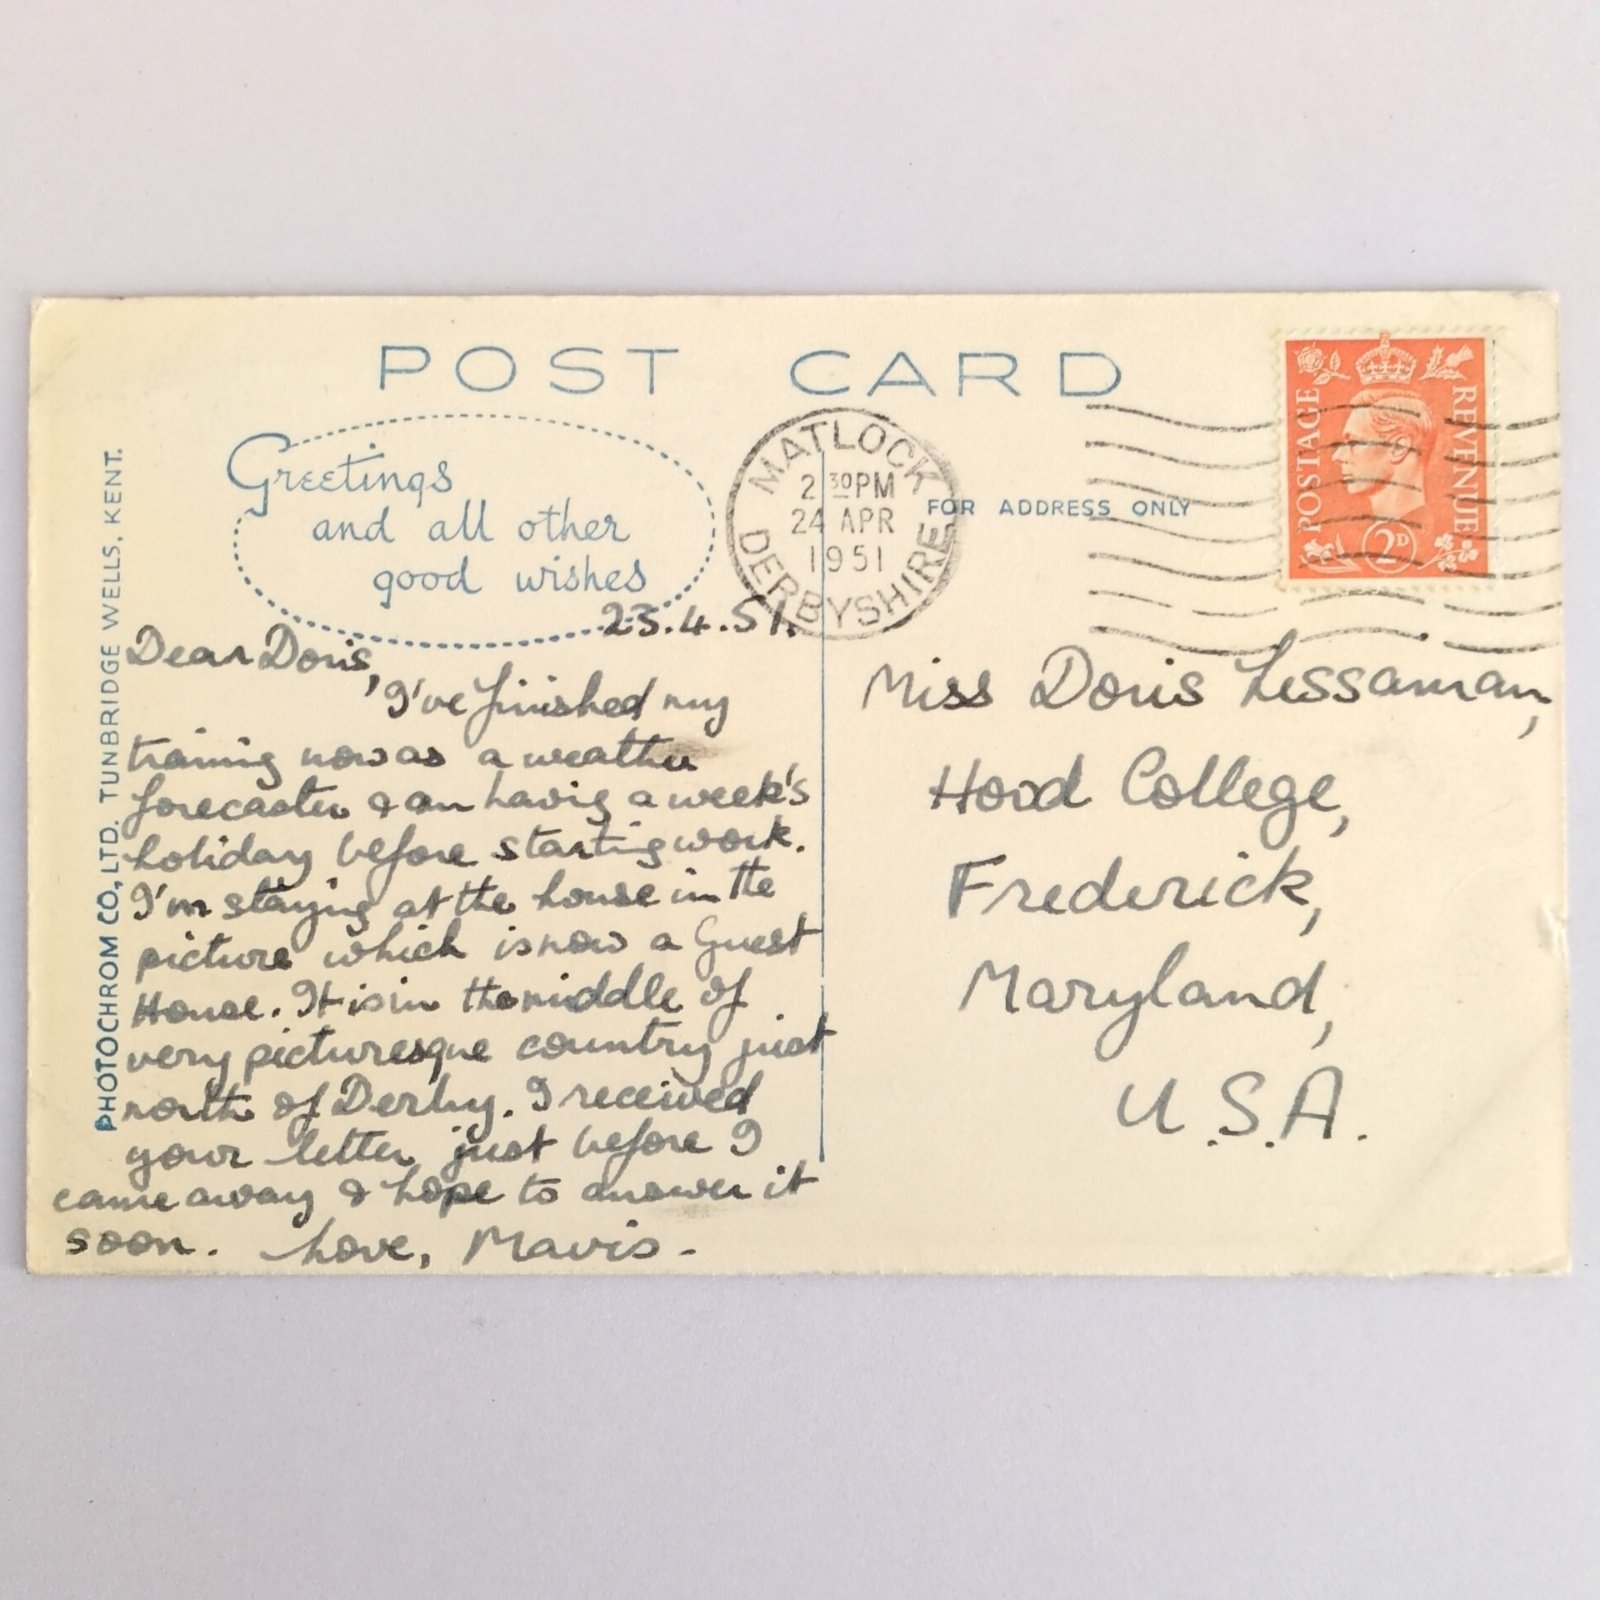 POST CARD
Greetings
and all other
good wishes
PHOTOCHROM CO., LTD. TUNBRIDGE WELLS, KENT.
MATLOCK
2 30 PM
24 APR
1951
DERBYSHIRE
FOR ADDRESS ONLY
POSTAGE
REVENUE
2D
23.4.51.
Dear Doris,
I've finished my
training now as a weather
forecaster & am having a week's
holiday before starting work.
I'm staying at the house in the
picture which is now a Guest
House. It is in the middle of
very picturesque country just
north of Derby. I received
your letter just before I
came away & hope to answer it
soon. Love, Mavis.
Miss Doris Lessaman,
Hood College,
Frederick,
Maryland,
U.S.A.